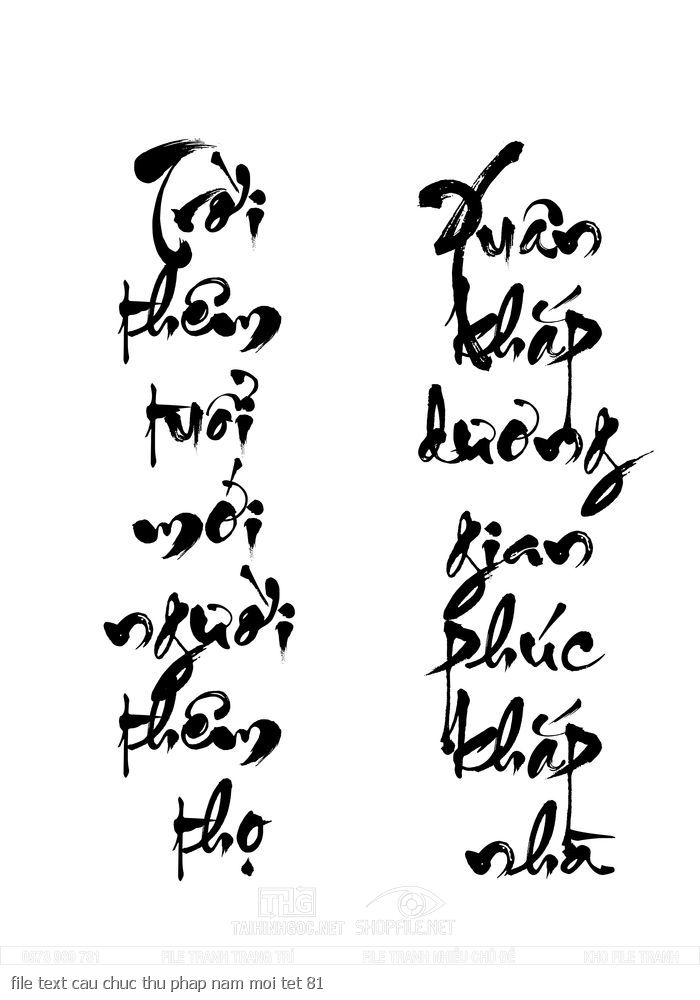 Trời
thêm
tuổi
mới
người
thêm
thọ
Xuân
khắp
dương
gian
phúc
khắp
nhà
THG
TAIHINHGOC.NET
SHOPFILE.NET
0873 989 781 FILE TRANH TRANG TRÍ FILE TRANH NHIỀU CHỦ ĐỀ KHO FILE TRANH
file text cau chuc thu phap nam moi tet 81